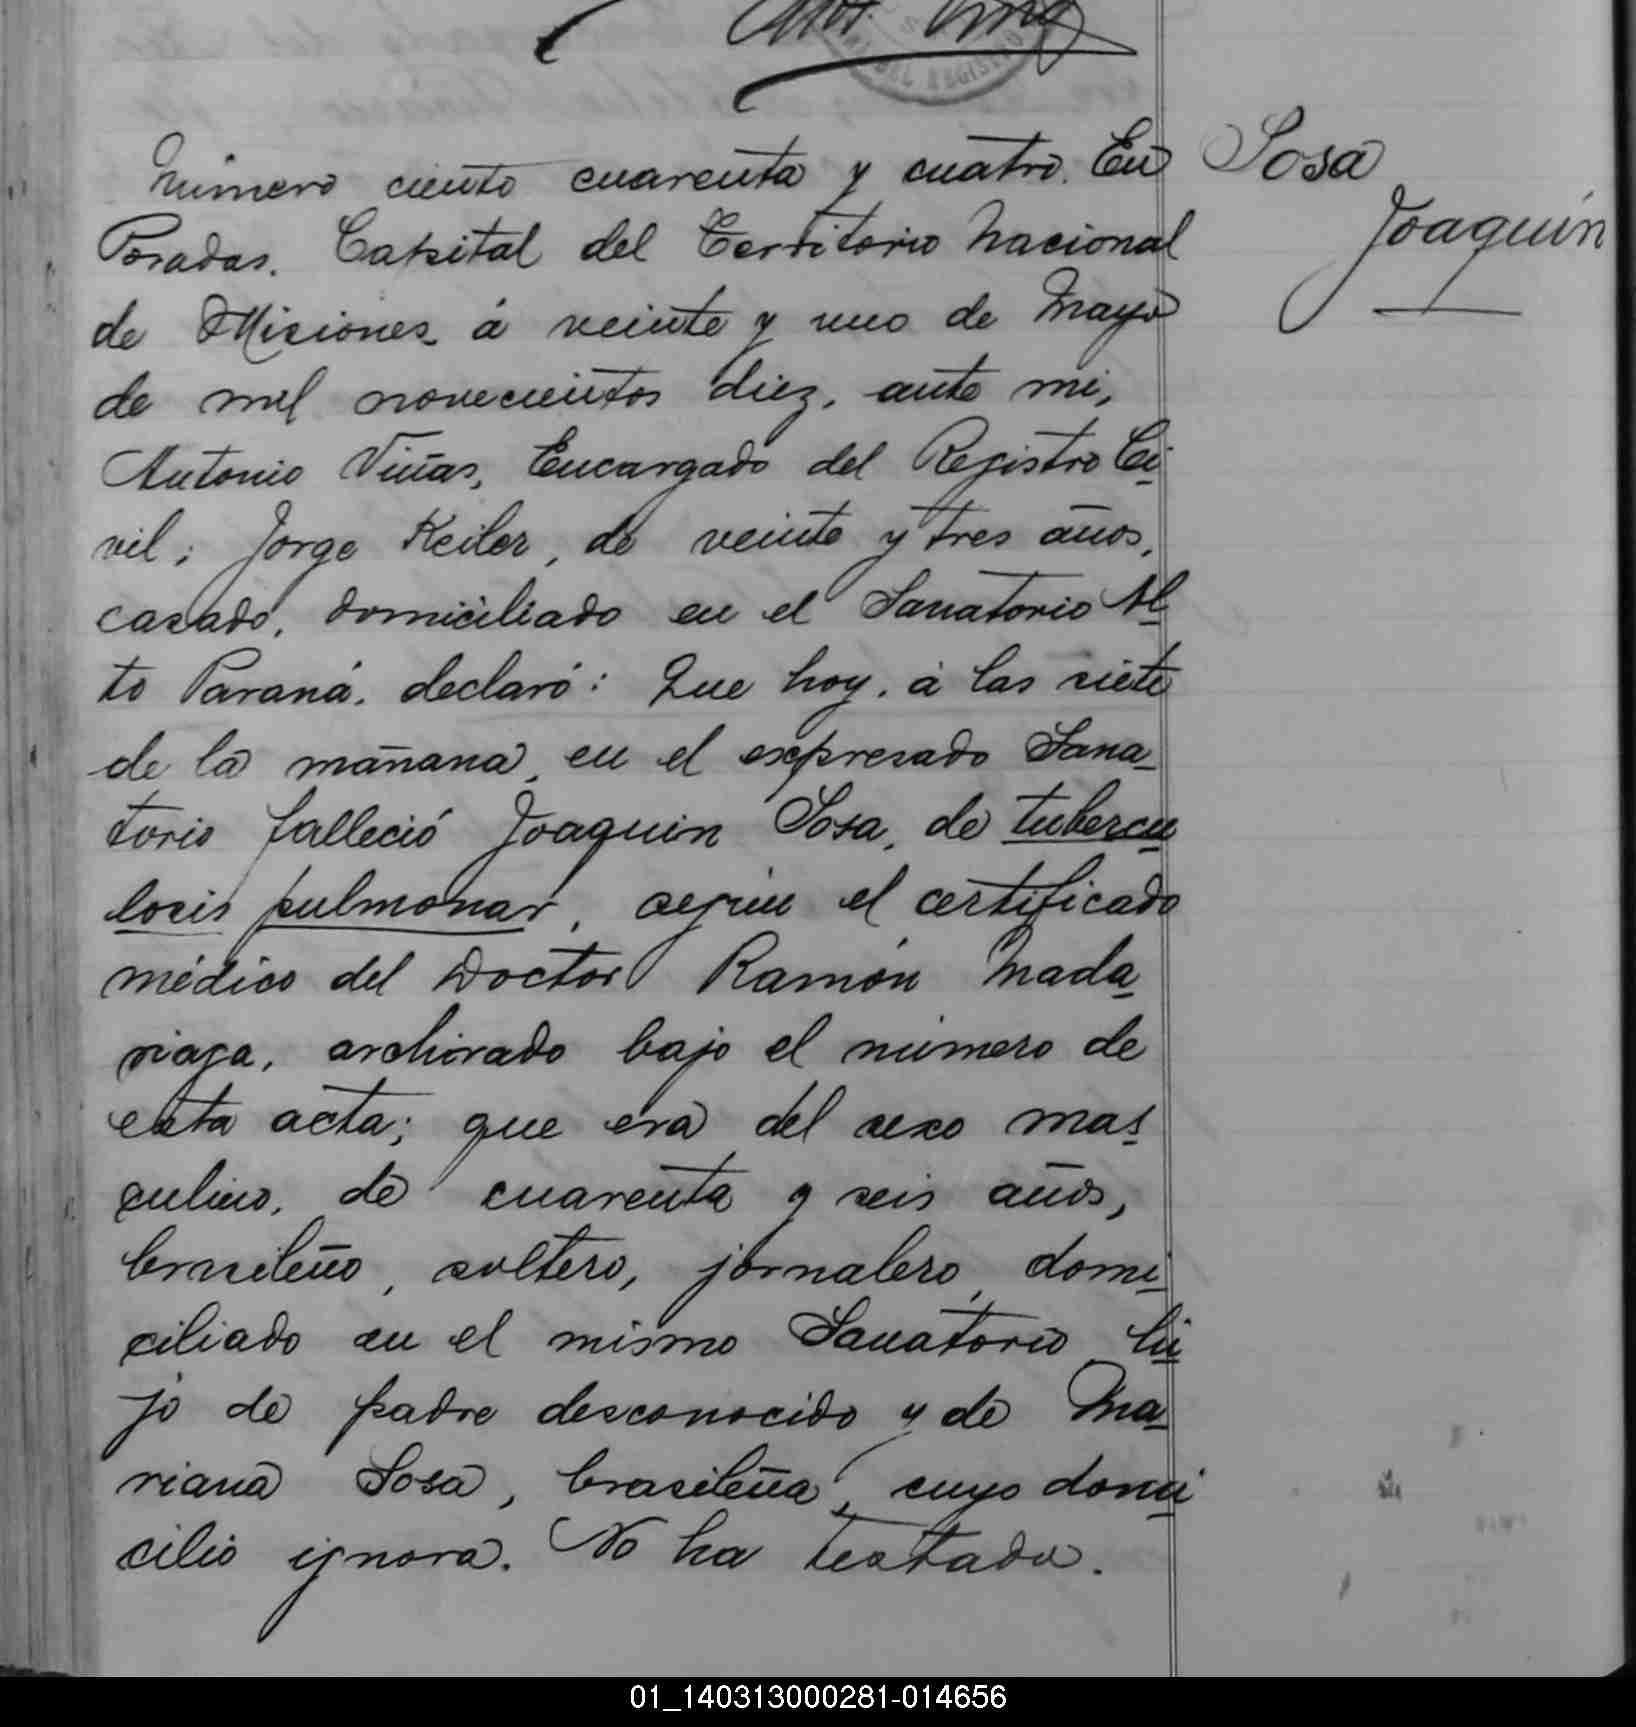 DEL REGISTRO
Número ciento cuarenta y cuatro. En
Posadas. Capital del Territorio Nacional
de Misiones á veinte y uno de Mayo
de mil novecientos diez, ante mi,
Antonio Viñas, Encargado del Registro Ci
vil; Jorge Keiler, de veinte y tres años,
casado, domiciliado en el Sanatorio Al
to Paraná. declaró: Que hoy. á las siete
de la mañana, en el expresado Sana_
torio falleció Joaquin Sosa, de tubercu
losis pulmonar, según el certificado
médico del Doctor Ramón Mada_
riaga, archivado bajo el número de
esta acta; que era del sexo mas
culino, de cuarenta y seis años,
brasileño, soltero, jornalero, domi
ciliado en el mismo Sanatorio, hi
jo de padre desconocido y de Ma
riana Sosa, brasileña, cuyo domi
cilio ignora. No ha testado.
Sosa
Joaquin
01_140313000281-014656